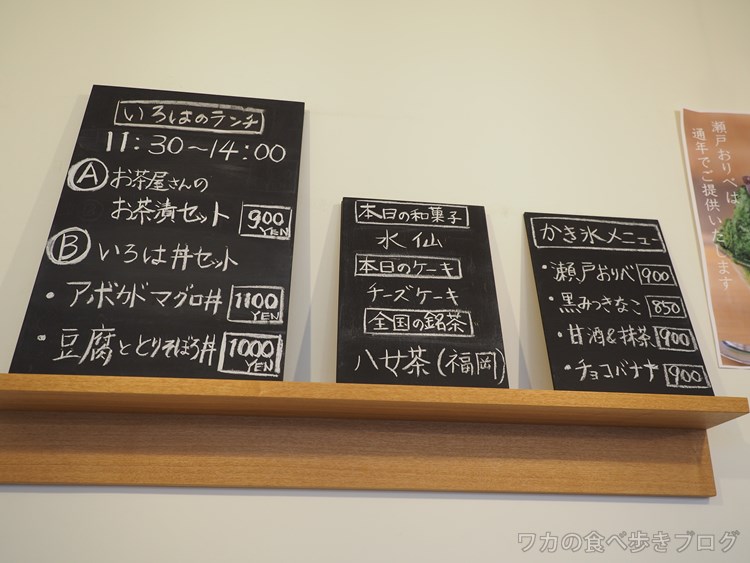 いろはのランチ
11:30～14:00
Ⓐお茶屋さんの
お茶漬セット 900 YEN
Ⓑいろは丼セット
・アボカドマグロ丼 1100 YEN
・豆腐ととりそぼろ丼 1000 YEN
本日の和菓子
水仙
本日のケーキ
チーズケーキ
全国の銘茶
八女茶(福岡)
かき氷メニュー
・瀬戸おりべ 900
・黒みつきなこ 850
・甘酒&抹茶 900
・チョコバナナ 900
瀬戸おりべは
通年でご提供いたします
ワカの食べ歩きブログ